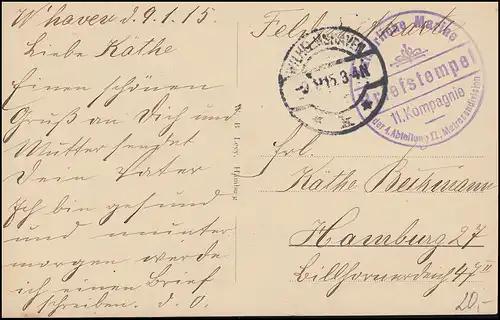 W'haven d. 9.1.15.
Liebe Käthe
Einen schönen
Gruß an Dich und
Mutter sendet
Dein Vater
Ich bin gesund
und munter
morgen werde
ich einen Brief
schreiben. d. O.
Feldpostkarte
WILHELMSHAVEN
15.3-4N
Marine
Briefstempel
11. Kompagnie
der 4. Abteilung II. Matrosendivision
Frl.
Käthe Beihmann
Hamburg 27
Billhornerdeich 47 III
20,-